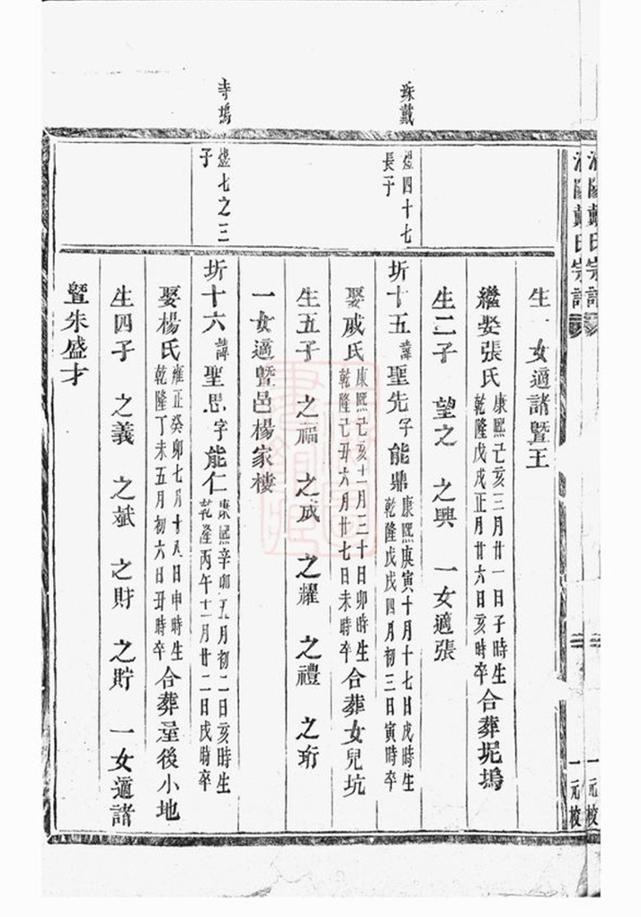 戴氏宗譜
一元校
生一女適諸暨王
繼娶張氏 康熙己亥三月廿一日子時生 乾隆戊戌正月廿六日亥時卒 合葬坭塢
生二子 望之 之興 一女適張
珠戴
煃四十七長子
圻十五 諱聖先字能鼎 康熙庚寅十月十七日戌時生 乾隆戊戌四月初三日寅時卒
娶戚氏 康熙己亥十二月三十日卯時生 乾隆己丑六月廿七日未時卒 合葬女兒坑
生五子 之福 之成 之耀 之禮 之珩
一女適暨邑楊家樓
寺塢
煃七之三子
圻十六 諱聖思字能仁 康熙辛卯五月初二日亥時生 乾隆丙午十一月廿二日戌時卒
娶楊氏 雍正癸卯七月十八日申時生 乾隆丁未五月初六日丑時卒 合葬屋後小地
生四子 之義 之斌 之財 之貯 一女適諸
暨朱盛才